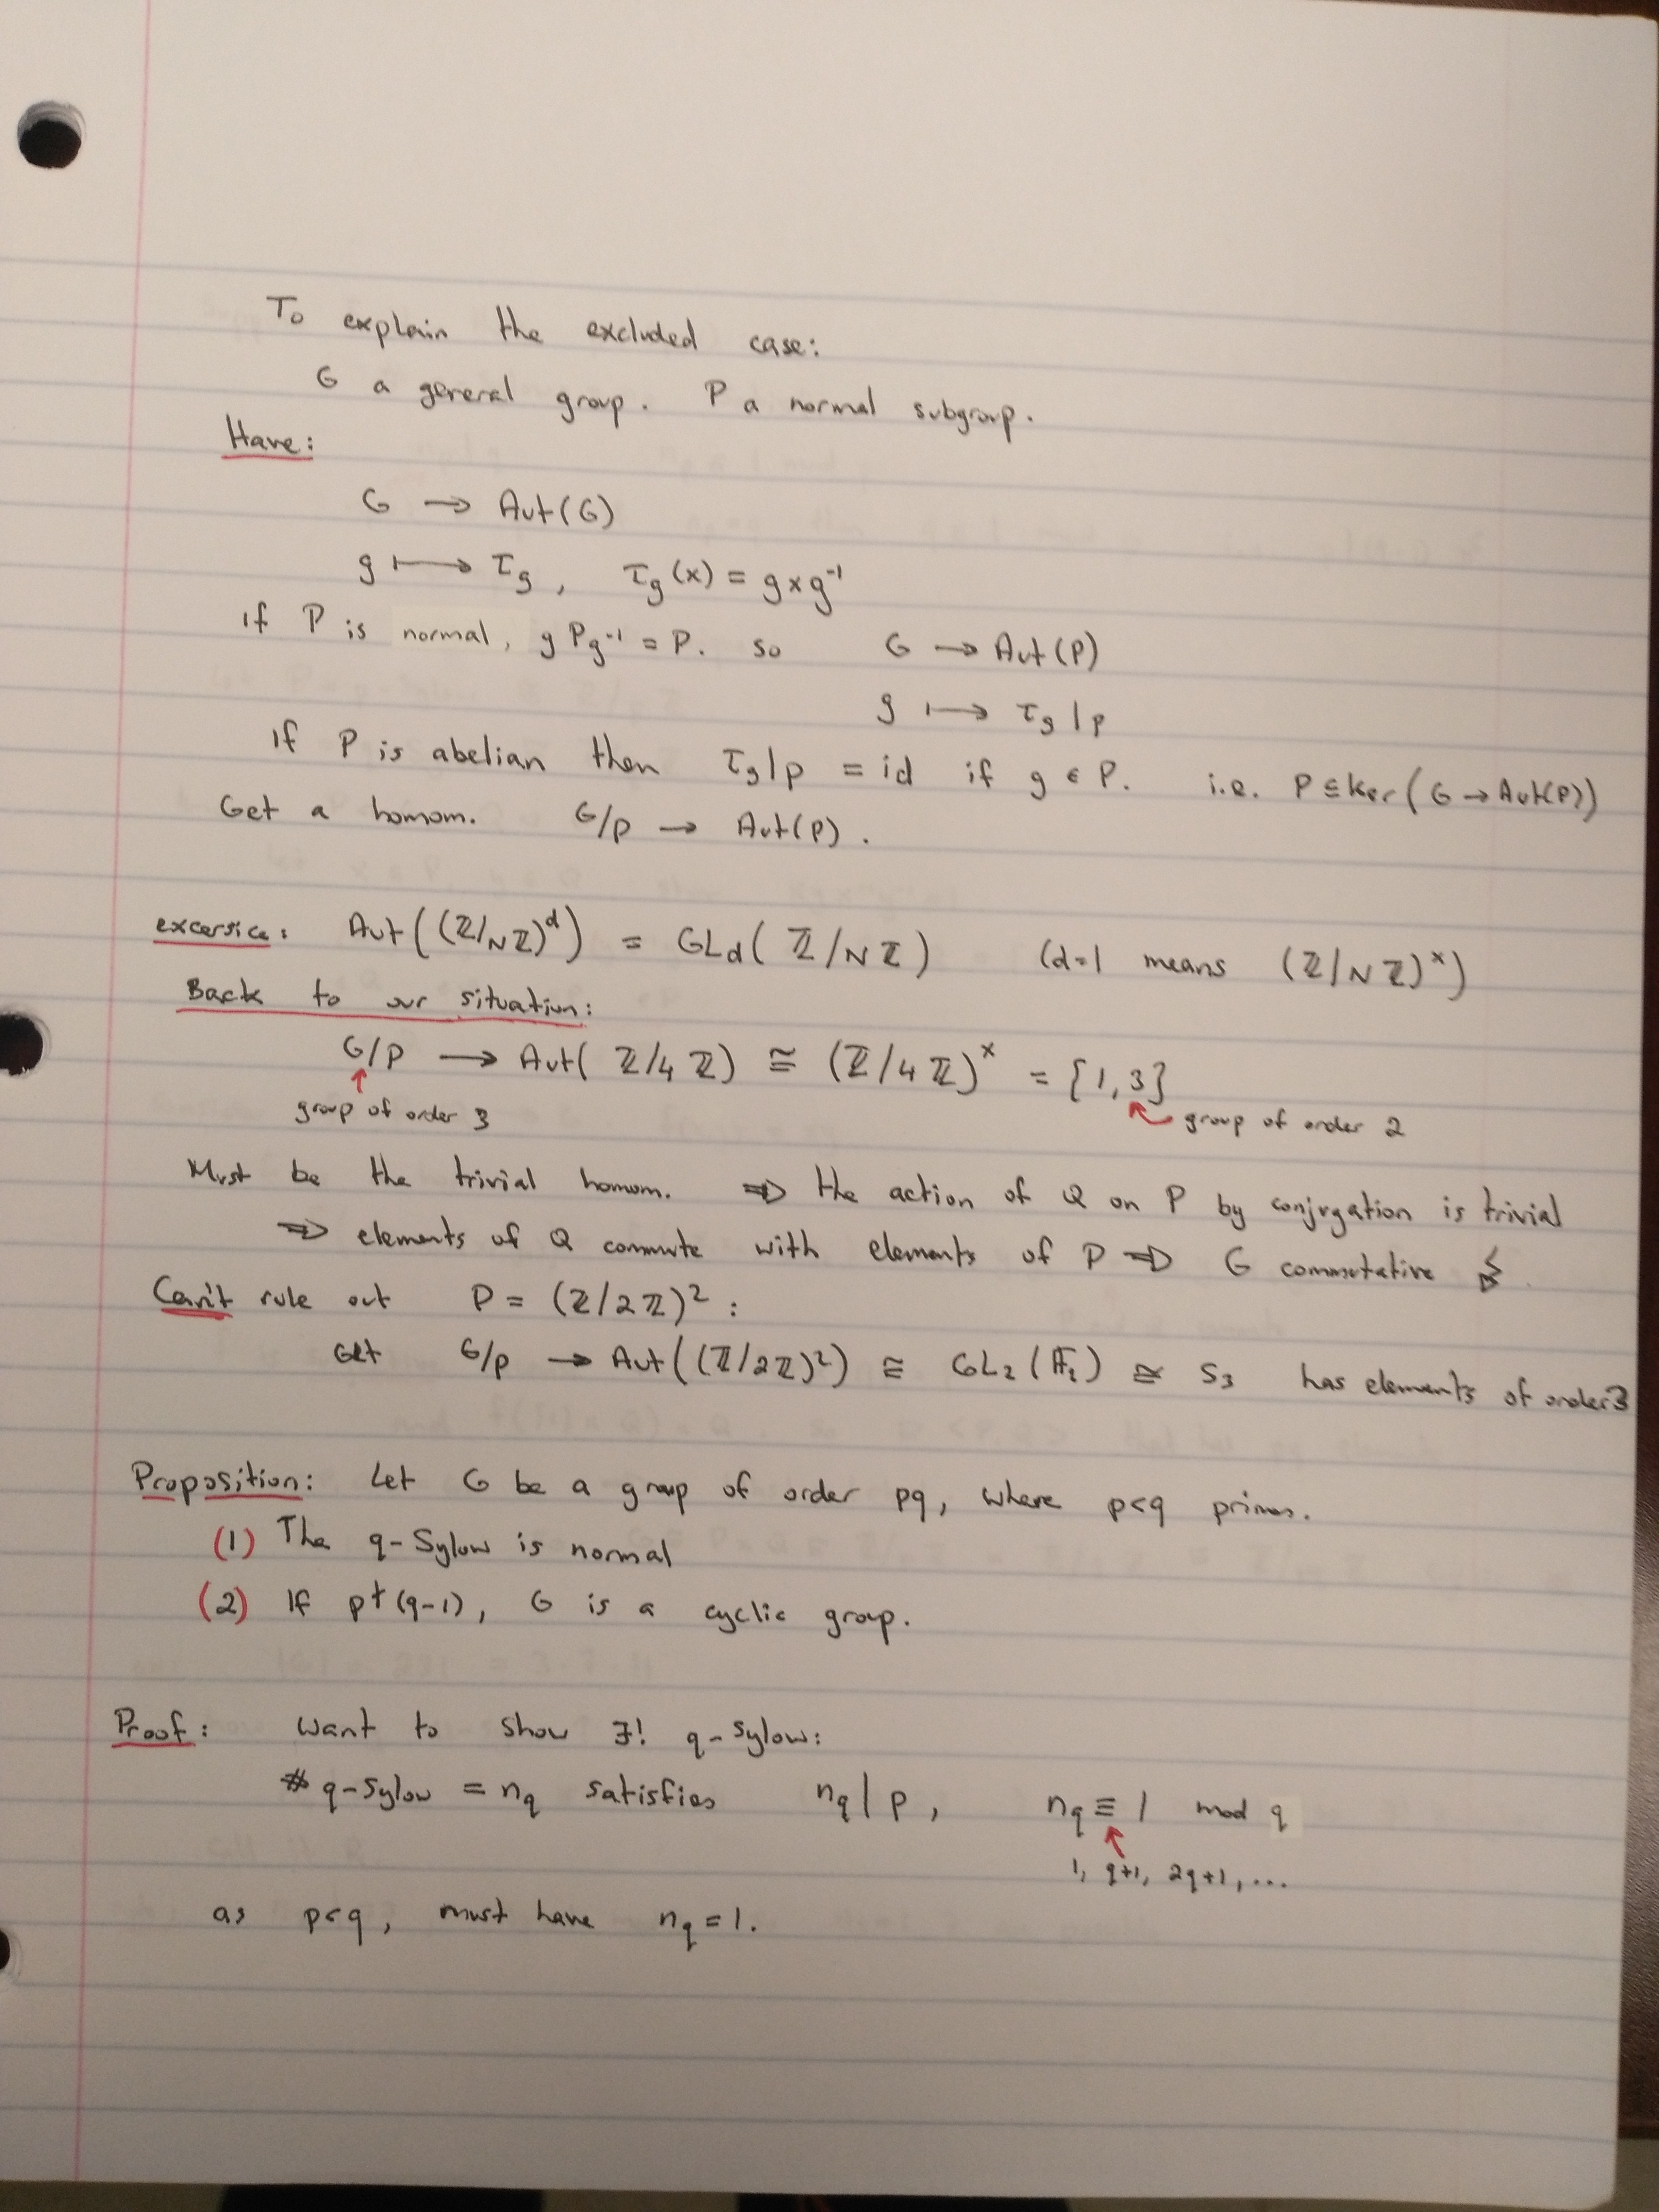 To explain the excluded case:
G a general group. P a normal subgroup.
Have:
G → Aut(G)
g ↦ τ_g, τ_g(x) = gxg⁻¹
if P is normal, gPg⁻¹ = P. so G → Aut(P)
g ↦ τ_g|p
If P is abelian then τ_g|p = id if g ∈ P. i.e. P ⊆ ker(G → Aut(P))
Get a homom. G/p → Aut(P).
excersice: Aut((ℤ/Nℤ)^d) = GL_d(ℤ/Nℤ) (d=1 means (ℤ/Nℤ)^×)
Back to our situation:
G/P → Aut(ℤ/4ℤ) ≅ (ℤ/4ℤ)^× = {1,3}
↑
group of order 3 group of order 2
Must be the trivial homom. ⇒ the action of Q on P by conjugation is trivial
⇒ elements of Q commute with elements of P ⇒ G commutative ↯
Can't rule out P = (ℤ/2ℤ)² :
Get G/p → Aut((ℤ/2ℤ)²) ≅ GL₂(𝔽₂) ≅ S₃ has elements of order 3
Proposition: Let G be a group of order pq, where p<q primes.
(1) The q-Sylow is normal
(2) If p∤(q-1), G is a cyclic group.
Proof: Want to show ∃! q-Sylow:
# q-Sylow = n_q satisfies n_q | p, n_q ≡ 1 mod q
↑
1, q+1, 2q+1, ...
as p<q, must have n_q = 1.